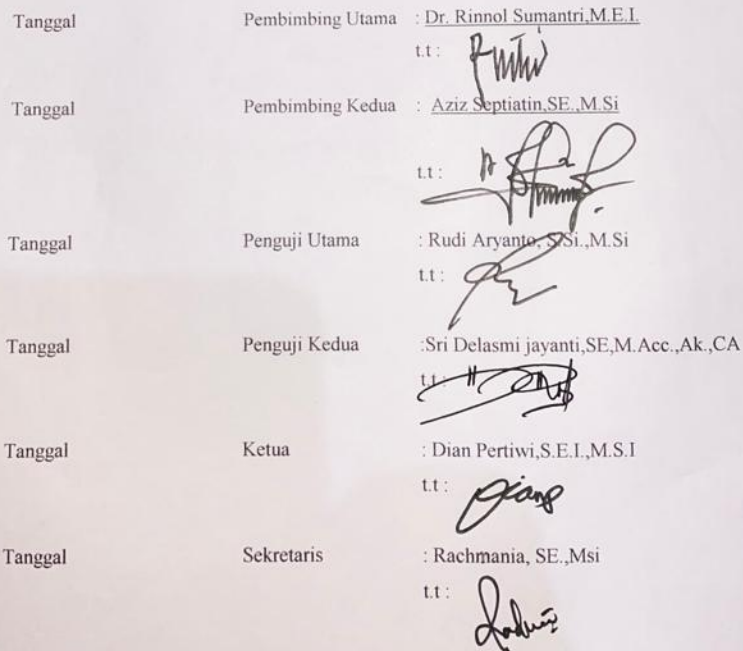 Tanggal Pembimbing Utama : Dr. Rinnol Sumantri,M.E.I.
t.t :
Tanggal Pembimbing Kedua : Aziz Septiatin,SE.,M.Si
t.t :
Tanggal Penguji Utama : Rudi Aryanto, S.Si.,M.Si
t.t :
Tanggal Penguji Kedua :Sri Delasmi jayanti,SE,M.Acc.,Ak.,CA
t.t :
Tanggal Ketua : Dian Pertiwi,S.E.I.,M.S.I
t.t :
Tanggal Sekretaris : Rachmania, SE.,Msi
t.t :